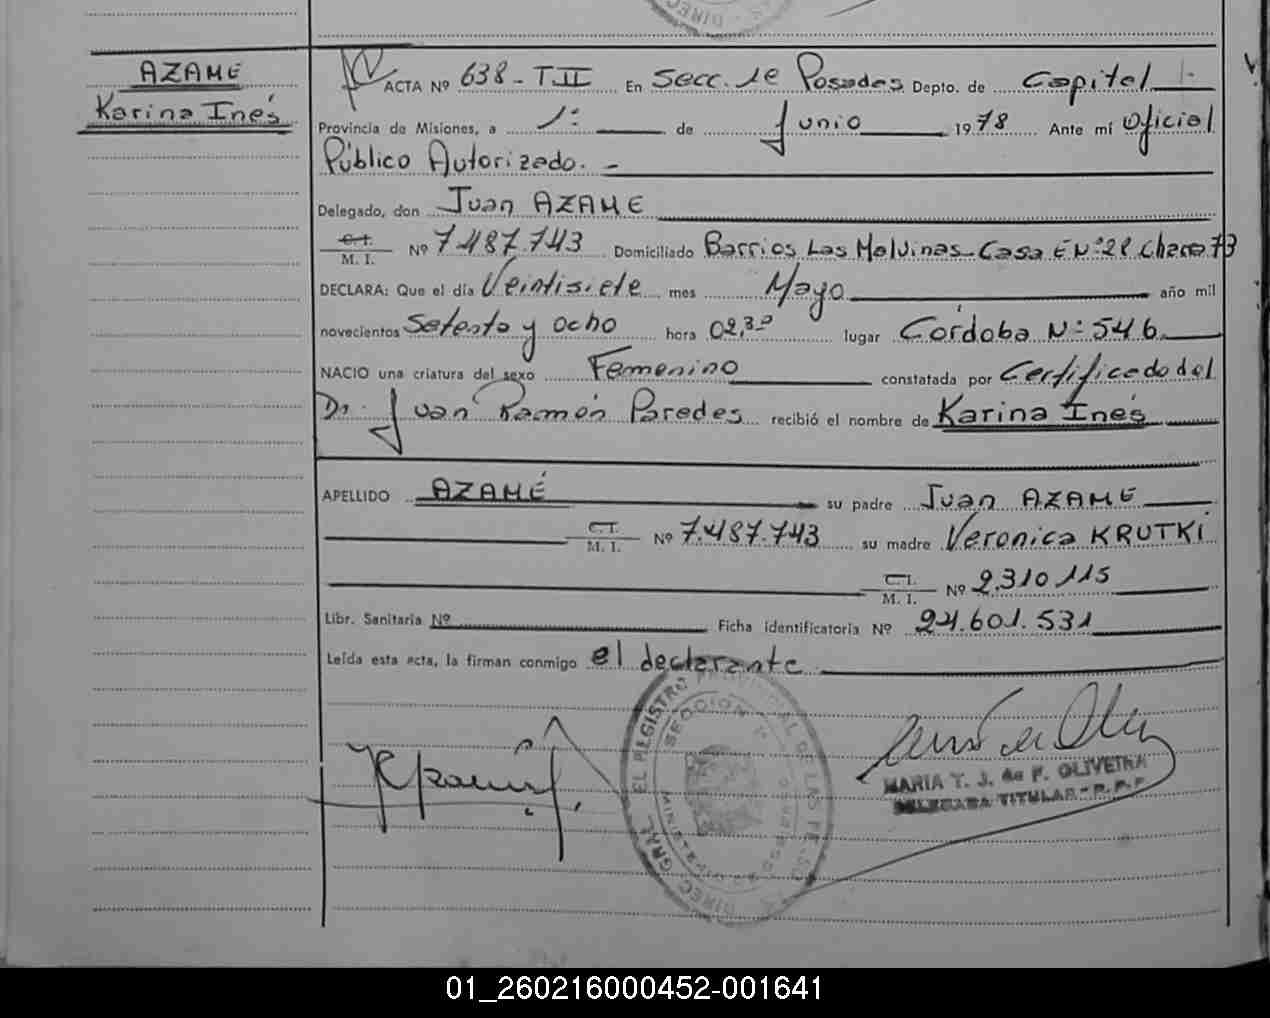 AZAME
Karina Inés
ACTA Nº 638 - T.II En Secc. 1e Posadas Depto. de Capital
Provincia de Misiones, a 1º de Junio 1978 Ante mí Oficial
Público Autorizado. -
Delegado, don Juan AZAME
C.I. M. I. Nº 7.487.743 Domiciliado Barrios Las Malvinas - Casa E Nº 28 Chacra 73
DECLARA: Que el día Veintisiete mes Mayo año mil
novecientos Setenta y ocho hora 02,30 lugar Córdoba Nº 546
NACIO una criatura del sexo Femenino constatada por Certificado del
Dr. Juan Ramón Paredes recibió el nombre de Karina Inés
APELLIDO AZAMÉ su padre Juan AZAME
C.I. M. I. Nº 7.487.743 su madre Veronica KRUTKI
C.I. M. I. Nº 2.310.115
Libr. Sanitaria Nº Ficha identificatoria Nº 24.601.531
Leída esta acta, la firman conmigo el declarante
REGISTRO PROVINCIAL DE LAS PERSONAS
SECCION 1ª
MARIA T. J. de F. OLIVEIRA
DELEGADA TITULAR - R.P.P.
01_260216000452-001641